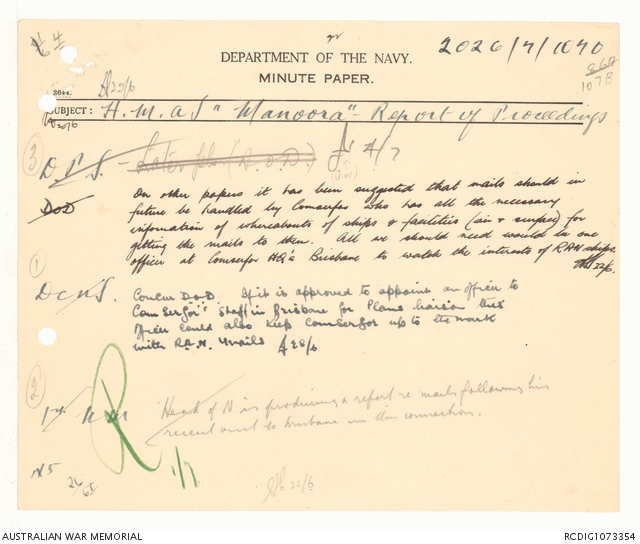 2026/7/1070
DEPARTMENT OF THE NAVY.
MINUTE PAPER.
1078
SUBJECT: H.M.A.S "Manoora" - Report of Proceedings
3
D.P.S. - Later pls (D.O.D.)
4/7
DoD
On other papers it has been suggested that mails should in
future be handled by Comserfor who has all the necessary
information of whereabouts of ships & facilities (air & surface) for
getting the mails to them. All we should need would be one
officer at Comserfor HQ's Brisbane to watch the interests of RAN ships.
22/6.
1
DCNS. Concur DoD. If it is approved to appoint an officer to
ComSerFor's Staff in Brisbane for Plans liaison this
officer could also keep ComSerFor up to the mark
with R.A.N. Mails 28/6
2
1st N M Head of N is producing a report re mails following his
recent visit to Brisbane in this connection.
R
1/7
22/6
AUSTRALIAN WAR MEMORIAL
RCDIG1073354